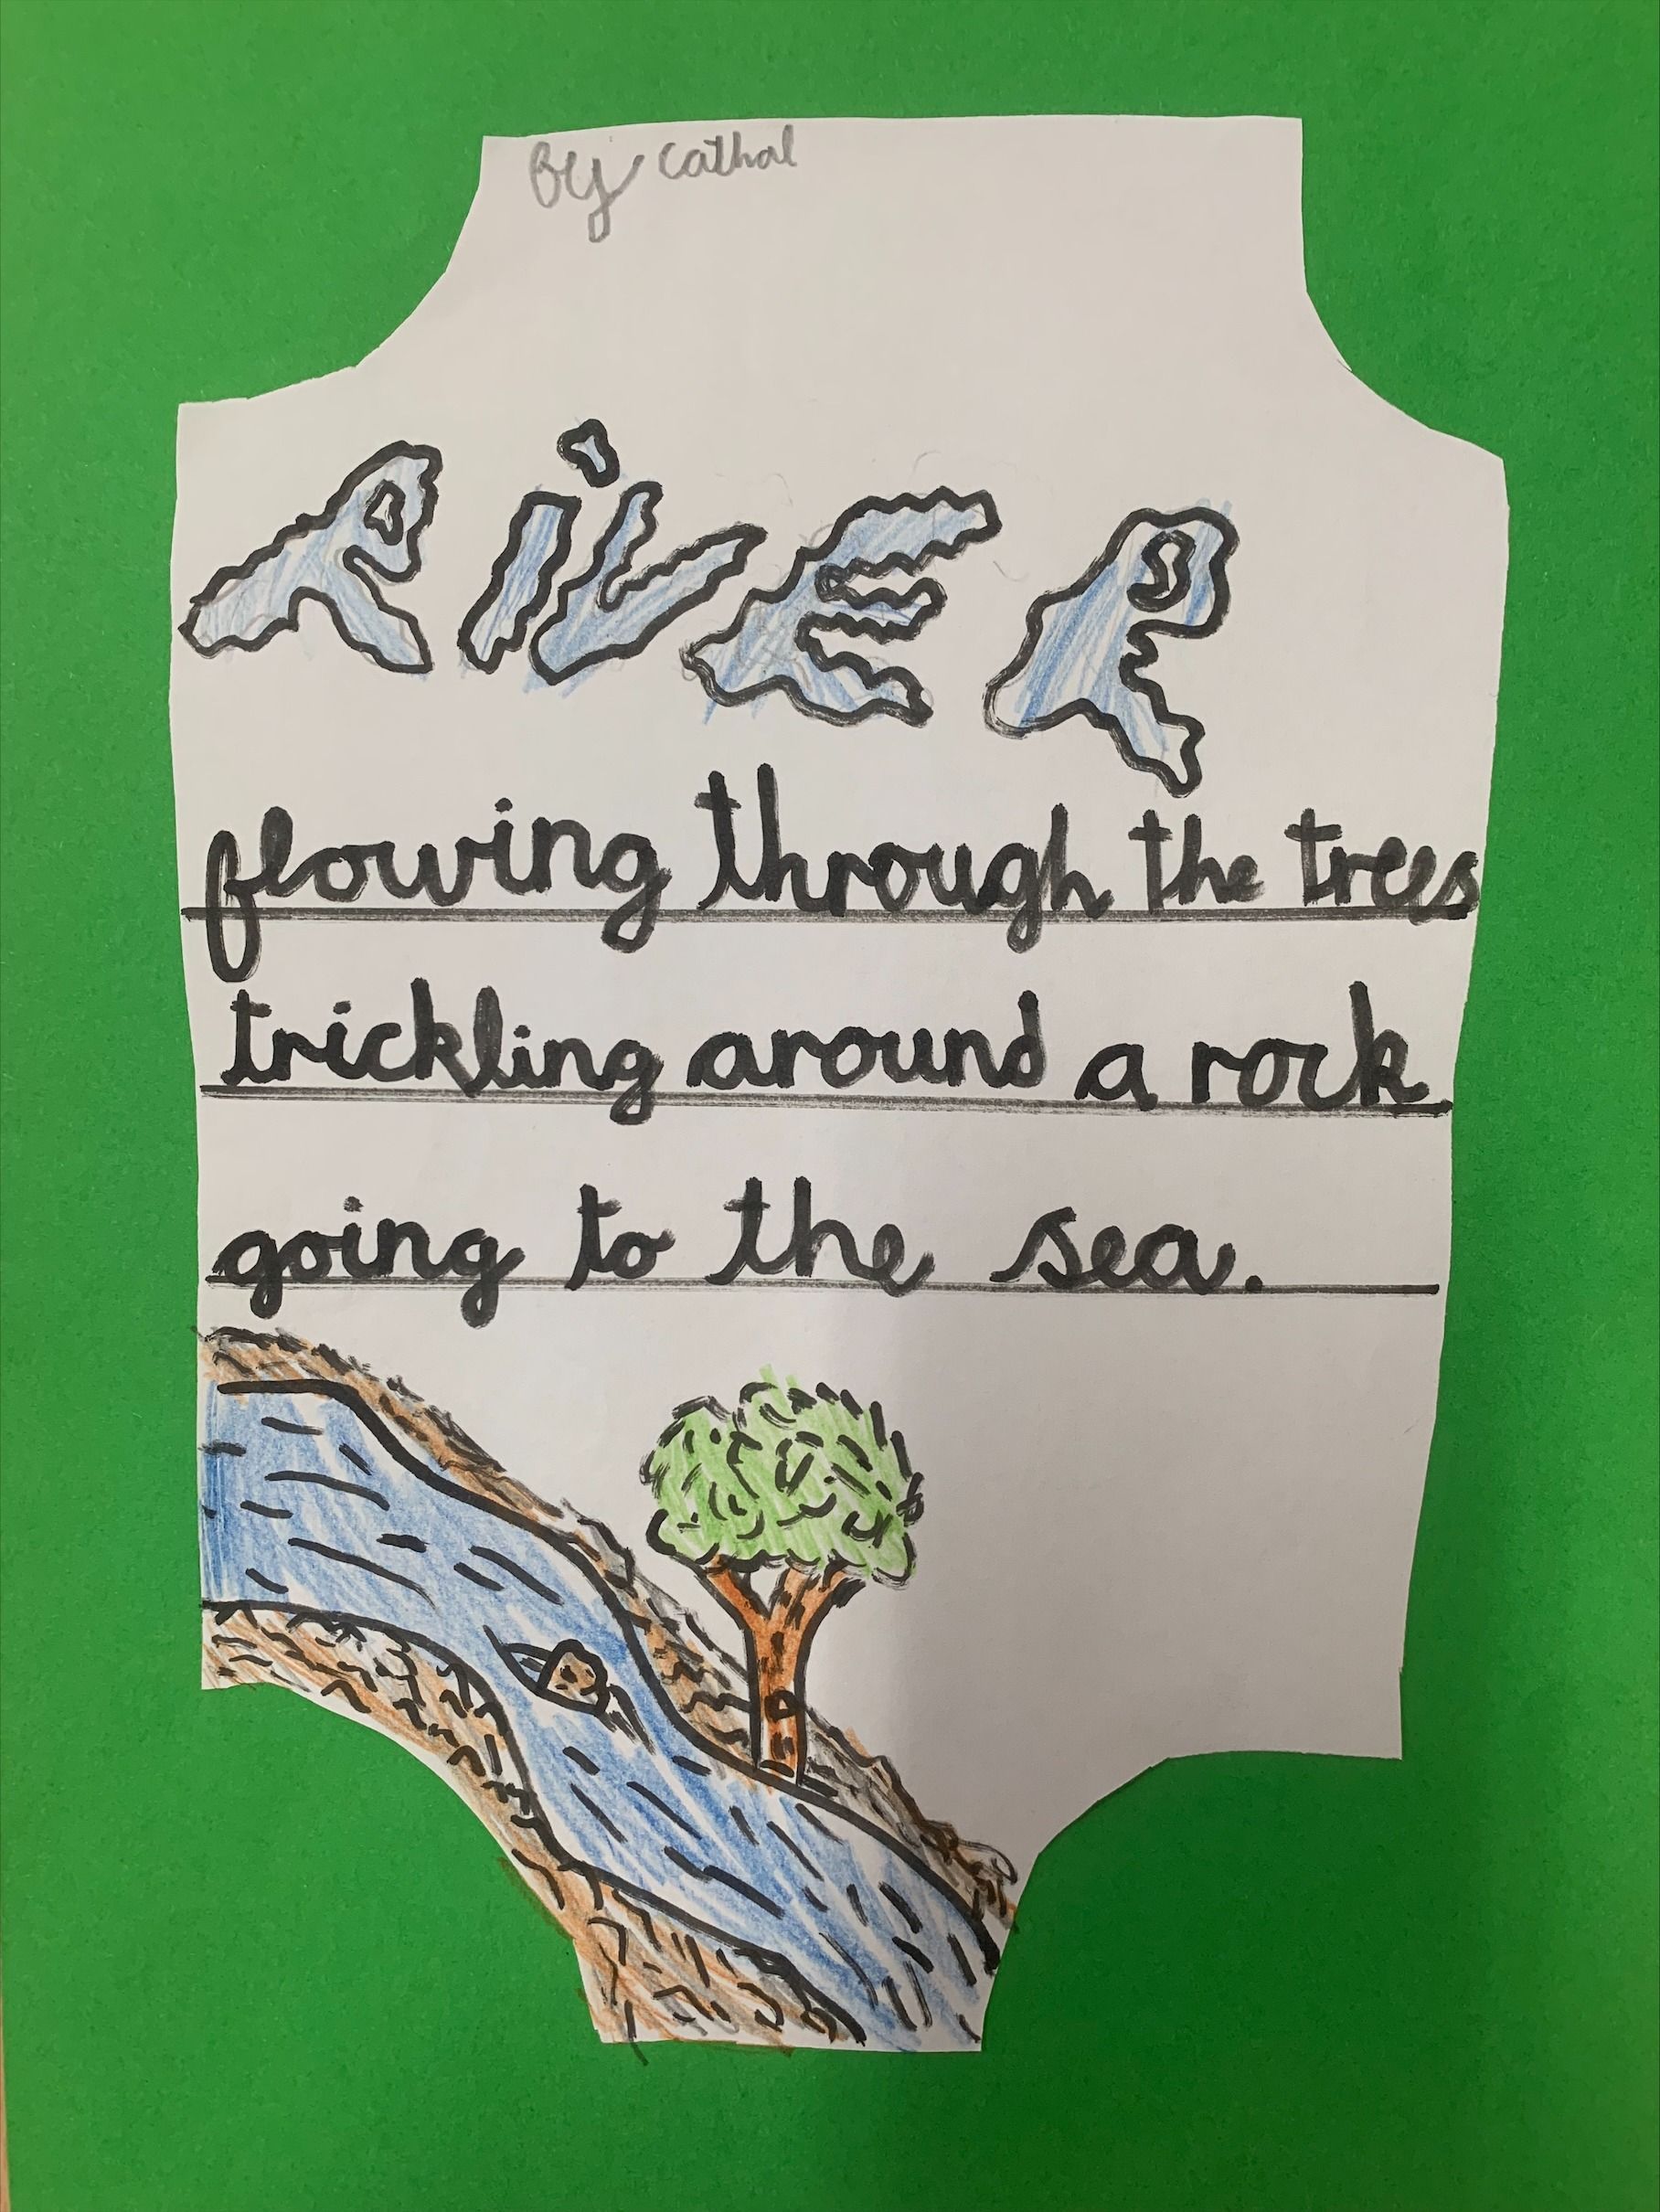 By Cathal
RiVER
flowing through the trees
trickling around a rock
going to the sea.